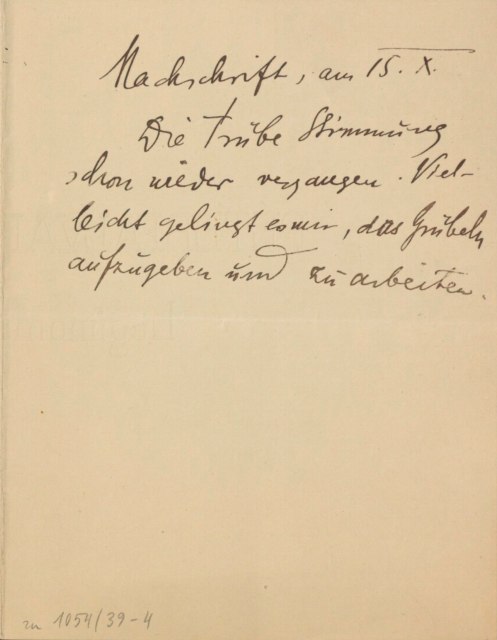 Nachschrift, am 15. X.
Die trübe Stimmung
schon wieder vergangen. Viel-
leicht gelingt es mir, das Grübeln
aufzugeben und zu arbeiten.
zu 1054/39-4